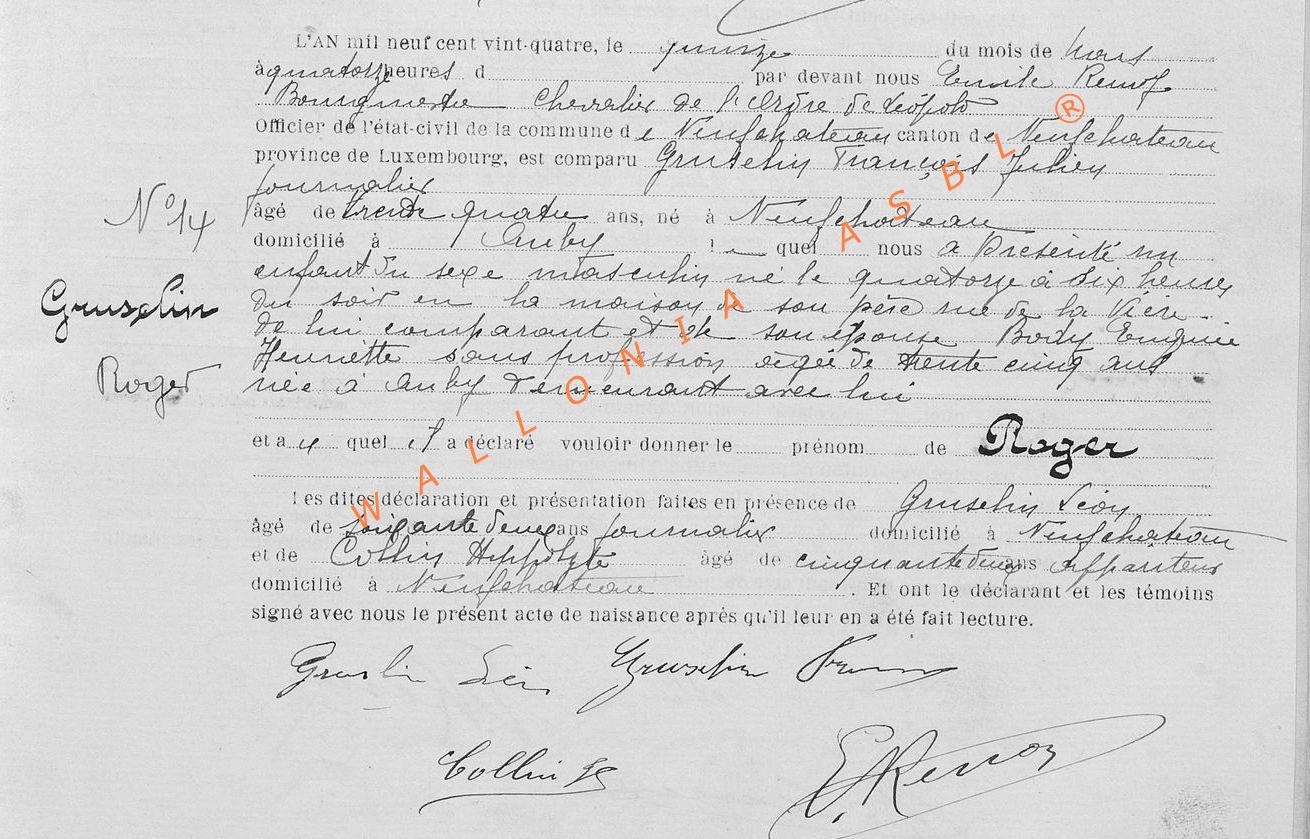 L'AN mil neuf cent vint-quatre, le quinze du mois de Mars
à quatorze heures d par devant nous Emile
Bourgmestre Chevalier de l'Ordre de Léopold
Officier de l'état-civil de la commune de Neufchateau canton de Neufchateau
province de Luxembourg, est comparu Gruselin François Julien
journalier
âgé de trente quatre ans, né à Neufchateau
domicilié à Auby quel nous a présenté un
enfant du sexe masculin né le quatorze à dix heures
du soir en la maison de son père rue de la
de lui comparant et de son épouse Body Eugénie
Henriette sans profession agée de trente cinq ans
née à Auby demeurant avec lui
et au quel il a déclaré vouloir donner le prénom de Roger
Les dites déclaration et présentation faites en présence de Gruselin Léon
âgé de ans journalier domicilié à Neufchateau
et de Collin Hippolyte âgé de ans
domicilié à Neufchateau. Et ont le déclarant et les témoins
signé avec nous le présent acte de naissance après qu'il leur en a été fait lecture.
N° 14
Gruselin
Roger
Gruselin Léon Gruselin
Collin
WALLONIA ASBL ®